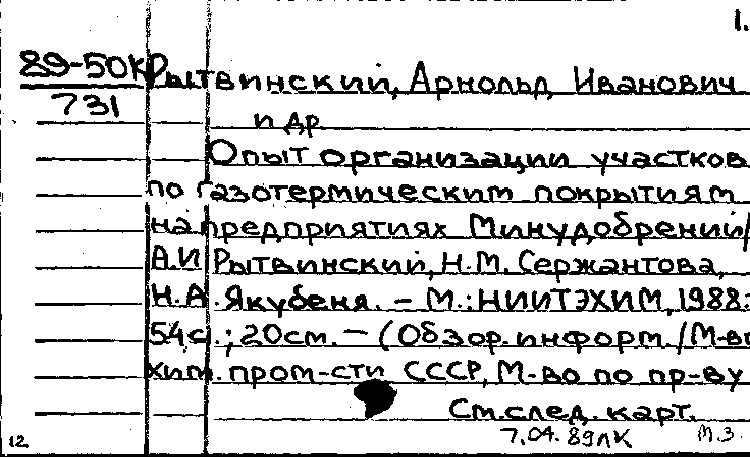 1.
89-50К Рытвинский, Арнольд Иванович
731
и др.
Опыт организации участков
по газотермическим покрытиям
на предприятиях Минудобрений/
А.И Рытвинский, Н.М. Сержантова,
Н.А. Якубеня. – М.: НИИТЭХИМ, 1988.
54с.; 20см. – (Обзор. информ. / М-во
хим. пром-сти СССР, М-во по пр-ву
См. след. карт.
7.04.89лк М.З.
12